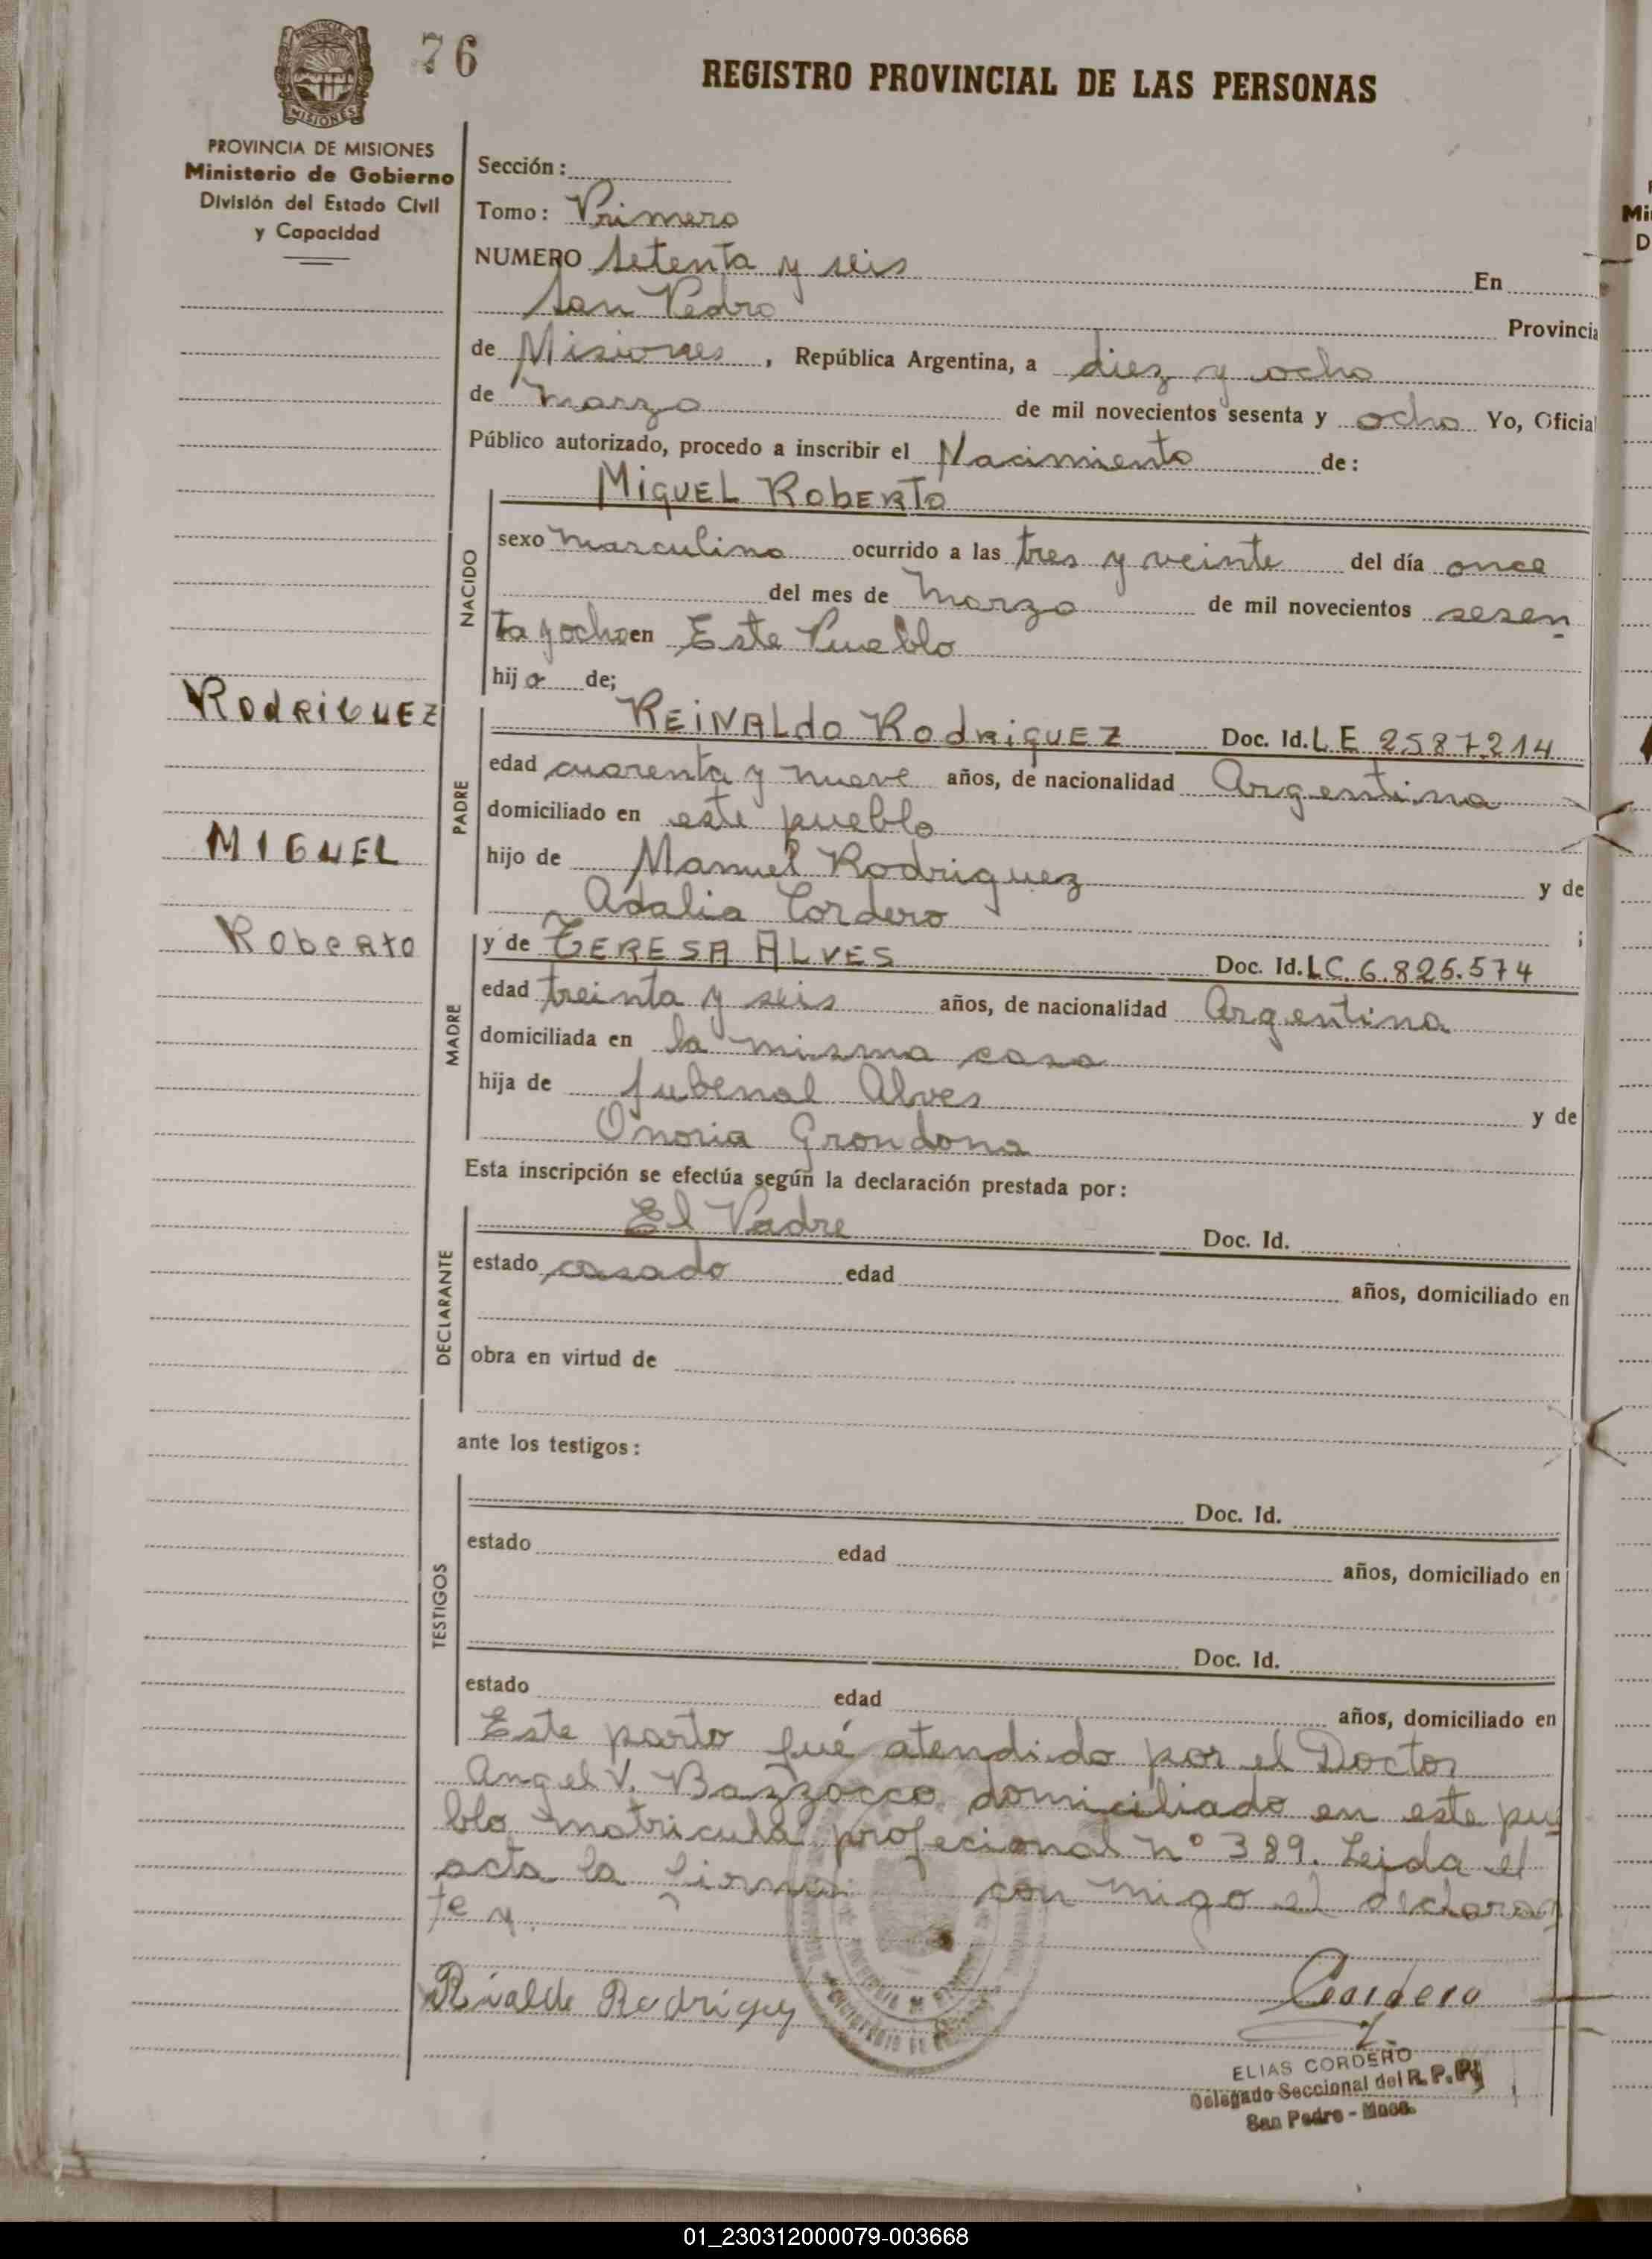 76
REGISTRO PROVINCIAL DE LAS PERSONAS
PROVINCIA DE MISIONES
Ministerio de Gobierno
División del Estado Civil
y Capacidad
Sección:
Tomo: Primero
NUMERO Setenta y seis En
San Pedro Provincia
de Misiones, República Argentina, a diez y ocho
de marzo de mil novecientos sesenta y ocho Yo, Oficial
Público autorizado, procedo a inscribir el Nacimiento de:
MIGUEL ROBERTO
NACIDO
sexo masculino ocurrido a las tres y veinte del día once
del mes de marzo de mil novecientos sesen
ta y ocho en Este Pueblo
hijo de;
RODRIGUEZ
MIGUEL
Roberto
PADRE
REINALdo RodRiguEZ Doc. Id. LE 2587214
edad cuarenta y nueve años, de nacionalidad Argentina
domiciliado en este pueblo
hijo de Manuel Rodriguez y de
Adalia Cordero ;
MADRE
y de TERESA ALVES Doc. Id. LC. 6.826.574
edad treinta y seis años, de nacionalidad Argentina
domiciliada en la misma casa
hija de Jubenal Alves y de
Onoria Grondona
Esta inscripción se efectúa según la declaración prestada por:
DECLARANTE
El Padre Doc. Id.
estado casado edad años, domiciliado en
obra en virtud de
ante los testigos:
TESTIGOS
Doc. Id.
estado edad años, domiciliado en
Doc. Id.
estado edad años, domiciliado en
Este parto fué atendido por el Doctor
Angel V. Bazzocco domiciliado en este pue
blo matricula profecional nº 389. Leida el
acta la firma con migo el declaran
te y.
Rinalde Rodriguez
Cordero
ELIAS CORDERO
Delegado Seccional del R. P. P.
San Pedro - Mnes.
01_230312000079-003668